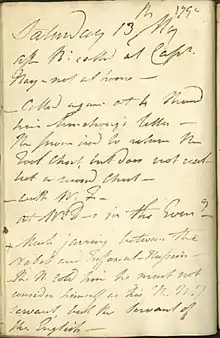 Saturday 13th 179
aft Bt called at Capt.
Hay - not at home -
- Called again at 4 Shewd
him letter -
He promised to return the
Tool Chest, but does not recol-
lect a second Chest -
- with W. F -
at Mr D - s in the Eveng
+ Much jarring between the
Nabob and Husein
The N told him he must not
consider himself as his (the N's)
servant, but the servant of
the English -